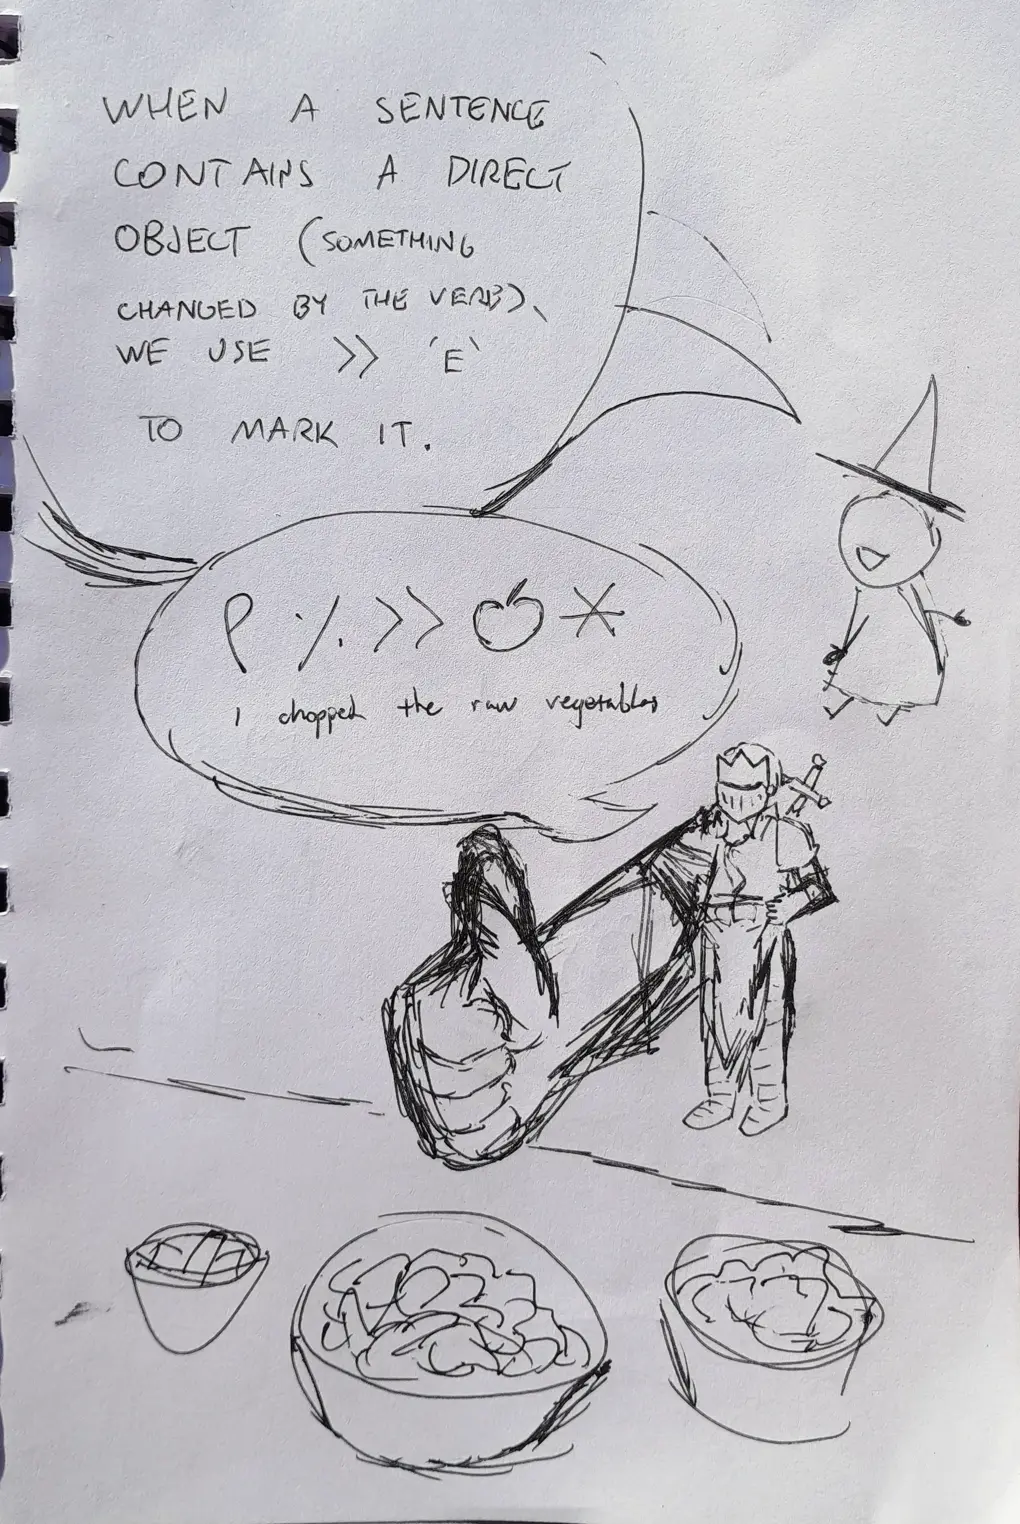 WHEN A SENTENCE
CONTAINS A DIRECT
OBJECT (SOMETHING
CHANGED BY THE VERB),
WE USE >> 'E'
TO MARK IT.
I chopped the raw vegetables